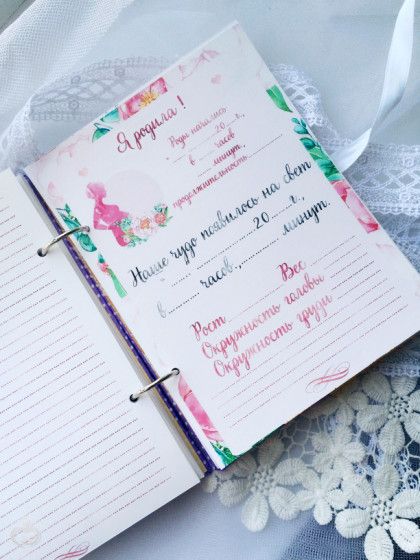 Я родила!
Роды начались
"........" ............ 20 ..... г.,
в ........ часов
............ минут,
продолжительность ............
Наше чудо появилось на свет
"........" ............ 20 ..... г.,
в ............ часов, ............ минут.
Рост ............ Вес ............
Окружность головы
Окружность груди